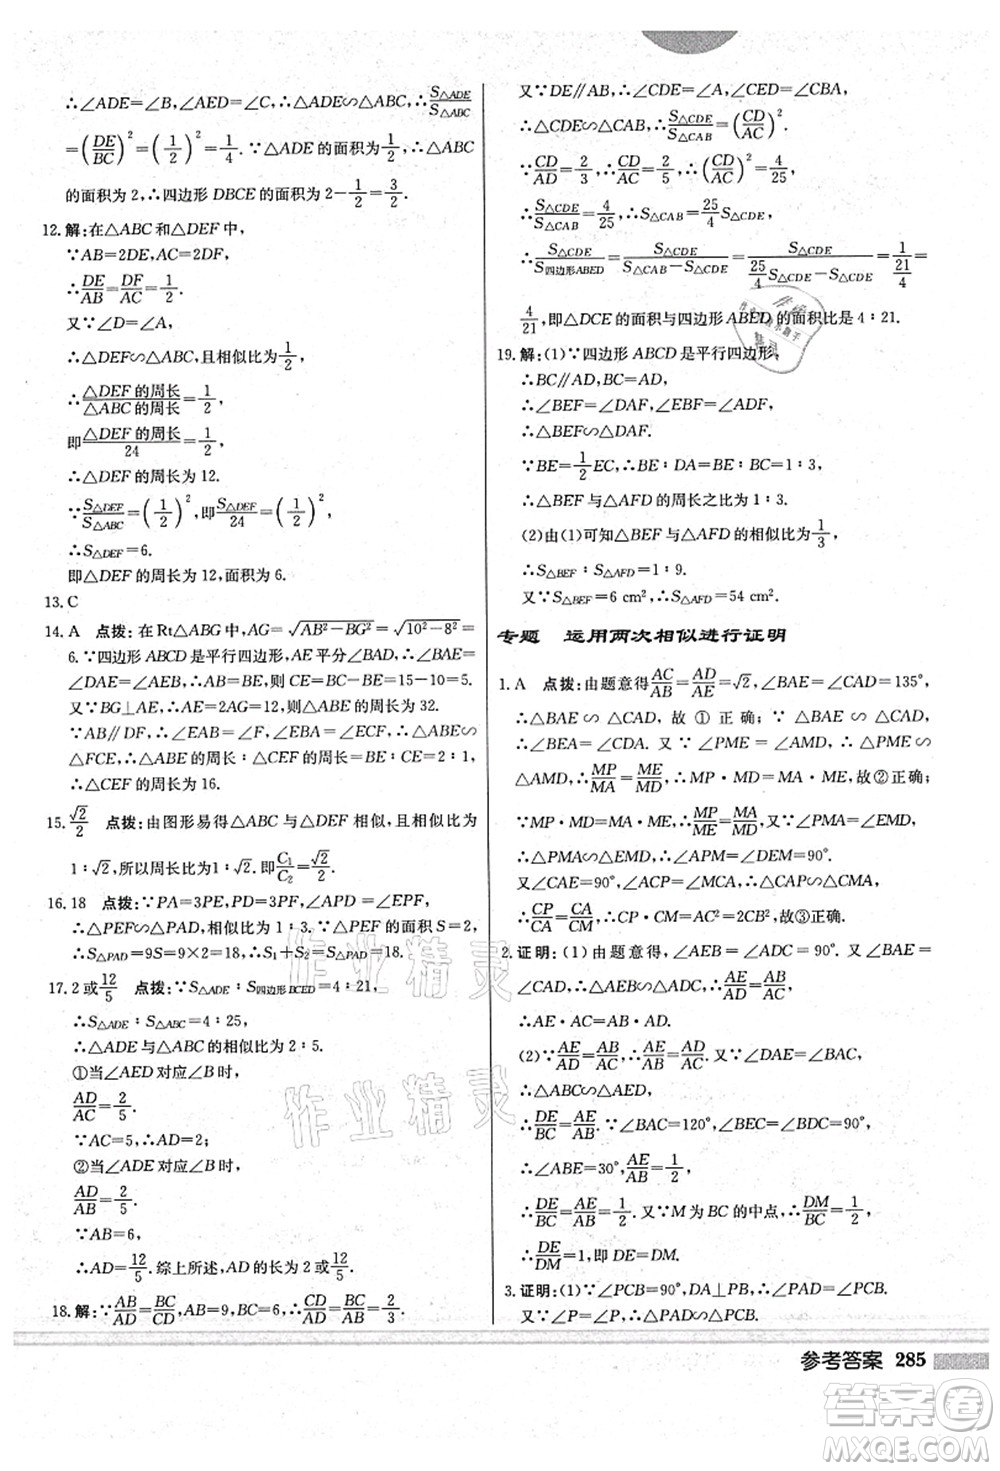 ∴∠ADE=∠B,∠AED=∠C,∴△ADE∽△ABC,∴S△ADE/S△ABC
=(DE/BC)²=(1/2)²=1/4.∵△ADE的面积与△ABC
的面积为2,∴四边形DBCE的面积为2-1/2=3/2.
12.解:在△ABC和△DEF中,
∵AB=2DE,AC=2DF,
∴DE/AB=DF/AC=1/2.
又∵∠D=∠A,
∴△DEF∽△ABC,且相似比为1/2,
∴△DEF的周长/△ABC的周长=1/2,
即△DEF的周长/24=1/2,
∴△DEF的周长为12.
∵S△DEF/S△ABC=(1/2)²,即S△DEF/24=(1/2)²,
∴S△DEF=6.
即△DEF的周长为12,面积为6.
13.C
14.A 点拨:在Rt△ABG中,AG=√(AB²-BG²)=√(10²-8²)=
6.∵四边形ABCD是平行四边形,AE平分∠BAD,∴∠BAE
=∠DAE=∠AEB,∴AB=BE=10,∴CE=BC-BE=15-10=5.
∵BG⊥AE,∴AE=2AG=12,则△ABE的周长为32.
∵AB∥DF,∴∠EAB=∠F,∠EBA=∠FCE,∴△ABE∽
△FCE,∴△ABE的周长:△CEF的周长=BE:CE=2:1,
∴△CEF的周长为16.
15.√2/2 点拨:由图形易得△ABC与△DEF相似,且相似比为
1:√2,所以周长比为1:√2.即C₁/C₂=√2/2.
16.18 点拨:∵PA=3PE,PD=3PF,∠APD=∠EPF,
∴△PEF∽△PAD,相似比为1:3.∵△PEF的面积S=2,
∴S△PAD=9S=9×2=18,∴S₁+S₂=S△PAD=18.
17.2或12/5 点拨:∵S△ADE:S四边形BCED=4:21,
∴S△ADE:S△ABC=4:25,
∴△ADE与△ABC的相似比为2:5.
①当∠AED对应∠B时,
AD/AC=2/5.
∵AC=5,∴AD=2;
②当∠ADE对应∠B时,
AD/AB=2/5.
∵AB=6,
∴AD=12/5.综上所述,AD的长为2或12/5.
18.解:∵AB/AD=BC/CD,AB=9,BC=6,∴CD/AD=BC/AB=2/3.
又∵DE∥AB,∴∠CDE=∠A,∠CED=∠CBA,
∴△CDE∽△CAB,∴S△CDE/S△CAB=(CD/AC)².
∵CD/AD=2/3,∴CD/AC=2/5,∴(CD/AC)²=4/25,
∴S△CDE/S△CAB=4/25,∴S△CAB=25/4S△CDE,
∴S△CDE/S四边形ABED=S△CDE/(S△CAB-S△CDE)=S△CDE/(25/4S△CDE-S△CDE)=1/(21/4)=
4/21,即△DCE的面积与四边形ABED的面积比是4:21.
19.解:(1)∵四边形ABCD是平行四边形,
∴BC∥AD,BC=AD,
∴∠BEF=∠DAF,∠EBF=∠ADF,
∴△BEF∽△DAF.
∵BE=1/2EC,∴BE:DA=BE:BC=1:3,
∴△BEF与△AFD的周长之比为1:3.
(2)由(1)可知△BEF与△AFD的相似比为1/3,
∴S△BEF:S△AFD=1:9.
又∵S△BEF=6 cm²,∴S△AFD=54 cm².
专题 运用两次相似进行证明
1.A 点拨:由题意得AC/AB=AD/AE=√2,∠BAE=∠CAD=135°,
∴△BAE∽△CAD,故①正确;∵△BAE∽△CAD,
∴∠BEA=∠CDA.又∵∠PME=∠AMD,∴△PME∽
△AMD,∴MP/MA=ME/MD,∴MP·MD=MA·ME,故②正确;
∵MP·MD=MA·ME,∴MP/ME=MA/MD,∵∠PMA=∠EMD,
∴△PMA∽△EMD,∴∠APM=∠DEM=90°.
又∵∠CAE=90°,∠ACP=∠MCA,∴△CAP∽△CMA,
∴CP/CA=CA/CM,∴CA²=CP·CM=2CB²,故③正确.
2.证明:(1)由题意得,∠AEB=∠ADC=90°.又∵∠BAE=
∠CAD,∴△ABE∽△ACD,∴AE/AD=AB/AC,
∴AE·AC=AB·AD.
(2)∵AE/AD=AB/AC,∴AE/AB=AD/AC.又∵∠EAD=∠BAC,
∴△ABC∽△AED,
∴DE/BC=AE/AB.∵∠BAC=120°,∠BEC=∠BDC=90°,
∴∠ABE=30°,∴AE/AB=1/2,
∴DE/BC=AE/AB=1/2.又∵M为BC的中点,∴DM/BC=1/2,
∴DE/DM=1,即DE=DM.
3.证明:(1)∵∠PCB=60°,DA⊥PB,∴∠PDA=∠PCB.
又∵∠P=∠P,∴△PDA∽△PCB.
参考答案 285
作业精灵
作业精灵
答案卷
MXQE.COM